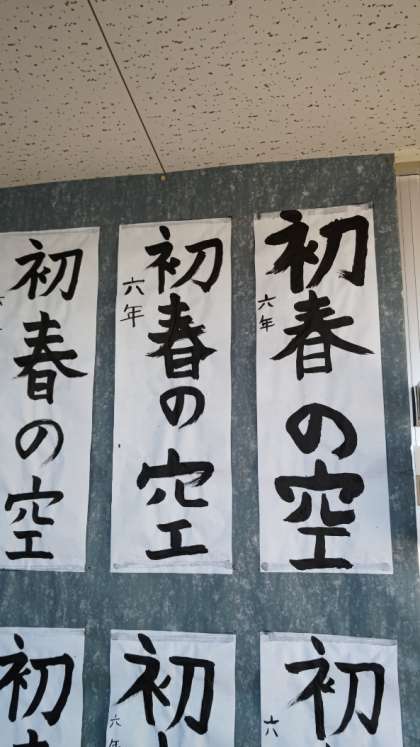 初春の空
六年
初春の空
六年
初春の空
初
六
初
六年
初